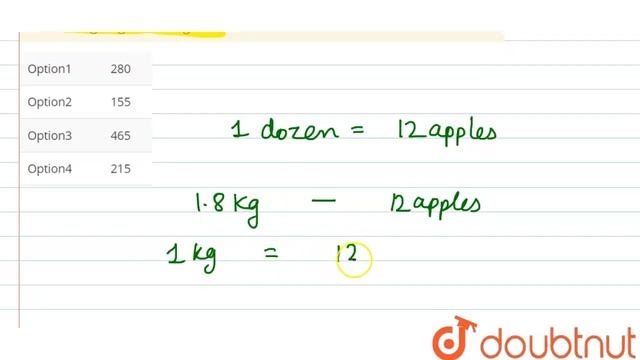 Option1 280
Option2 155
Option3 465
Option4 215
1 dozen = 12 apples
1.8 kg — 12 apples
1 kg = 12
doubtnut